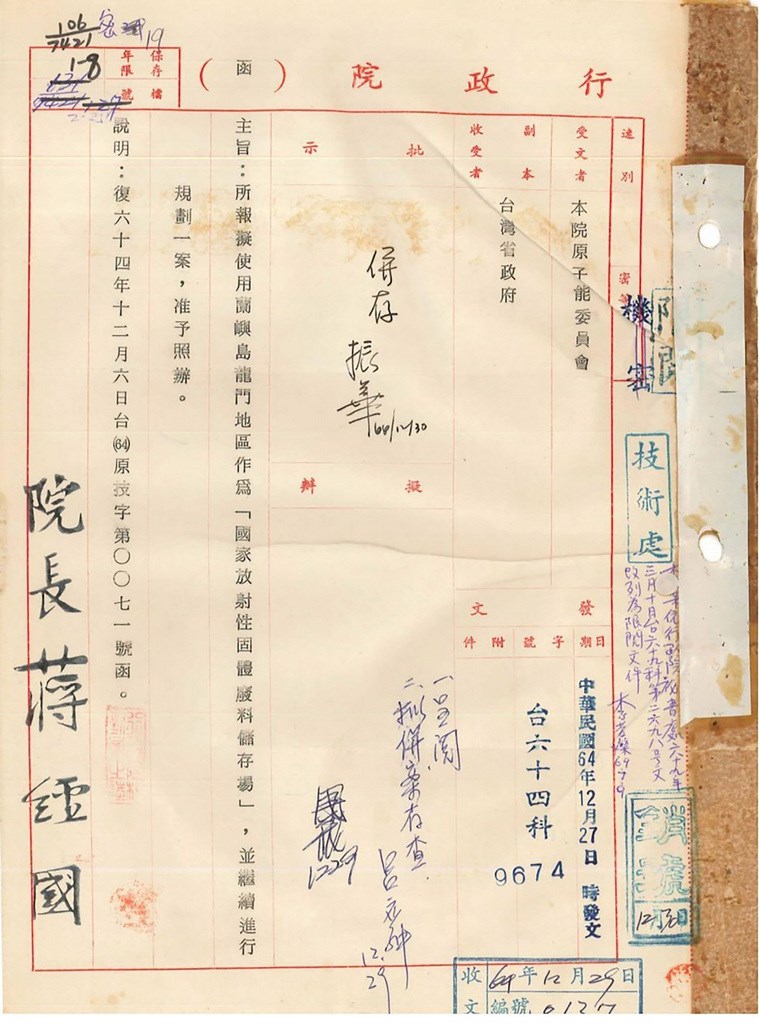 行政院
（函）
保存年限
檔號
速別
密等
機密
受文者
本院原子能委員會
副本收受者
台灣省政府
批示
併存
振華
擬辦
發文
日期
字號
附件
中華民國64年12月27日 時發文
台六十四科
9674
主旨：所報擬使用蘭嶼島龍門地區作為「國家放射性固體廢料儲存場」，並繼續進行
規劃一案，准予照辦。
說明：復六十四年十二月六日台(64)原技字第〇〇七一號函。
院長蔣經國
一、呈閱
二、擬併案存查
12.29
1229
技術處
三月十日台六十九科第二六九八号文
改列為限閱文件
12月30日
收文
64年12月29日
編號
106
7421
1-8
19